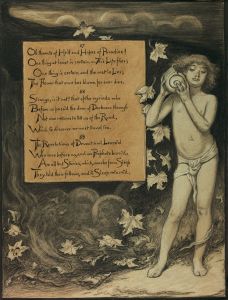 Oh threats of Hell and Hopes of Paradise!
One thing at least is certain—This Life flies;
One thing is certain, and the rest is Lies;
The Flower that once has blown for ever dies.
Strange, is it not? that of the myriads who
Before us pass'd the door of Darkness through
Not one returns to tell us of the Road,
Which to discover we must travel too.
The Revelations of Devout and Learn'd
Who rose before us, and as Prophets burn'd,
Are all but Stories, which, awoke from Sleep
They told their fellows, and to Sleep return'd.